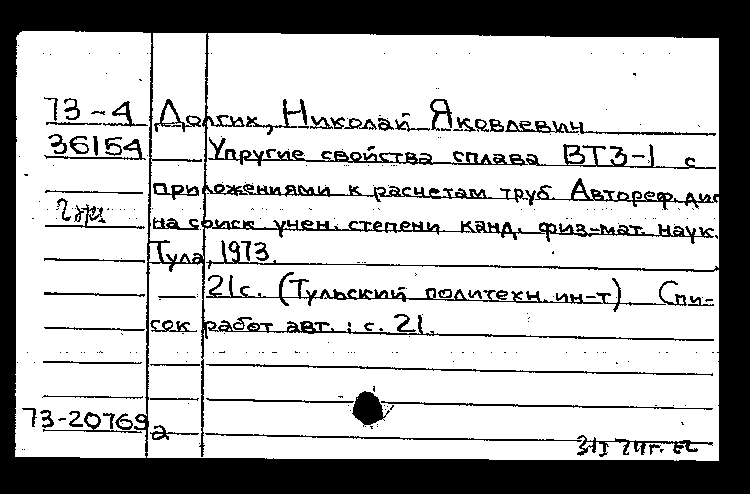 73-4 Долгих, Николай Яковлевич
36154 Упругие свойства сплава ВТ3-1 с
приложениями к расчетам труб. Автореф. дис
на соиск учен. степени канд. физ.-мат. наук.
Тула, 1973.
21с. (Тульский политехн. ин-т) Спи-
сок работ авт.: с. 21.
73-20769
а
31I 74г.